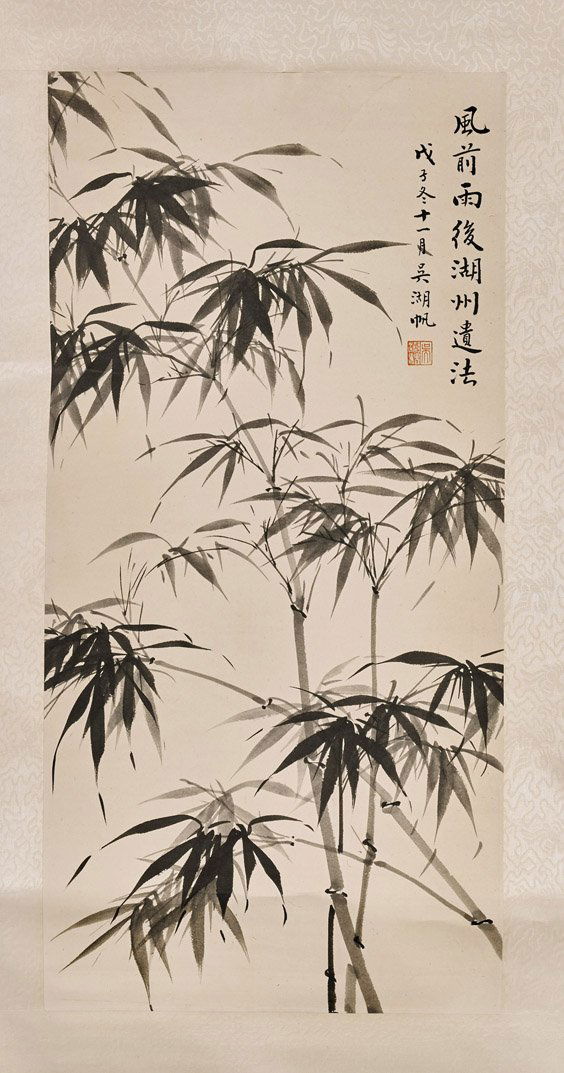 風前雨後湖州遺法
戊子冬十一月吳湖帆